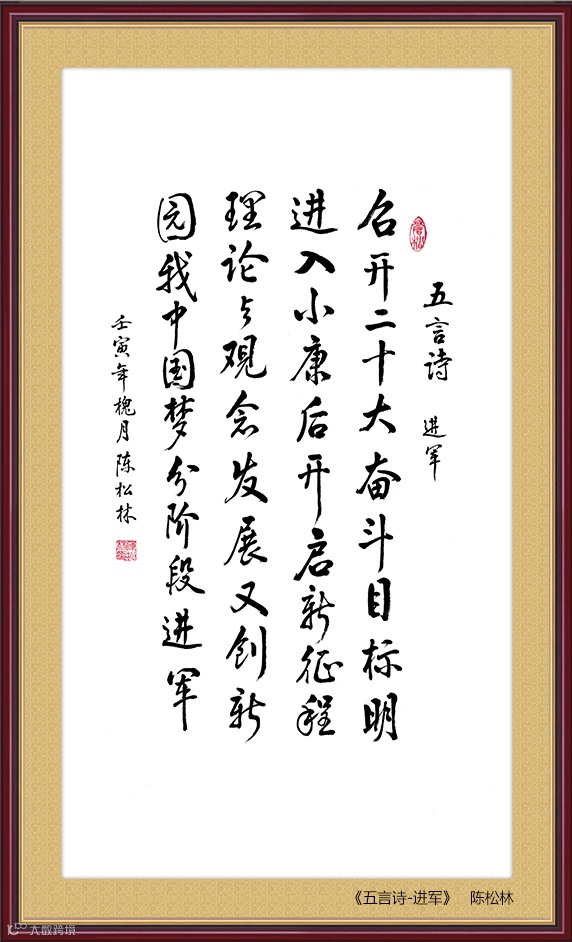 五言诗 进军
召开二十大奋斗目标明
进入小康后开启新征程
理论与观念发展又创新
园我中国梦分阶段进军
壬寅年槐月陈松林
《五言诗-进军》 陈松林
大数跨境